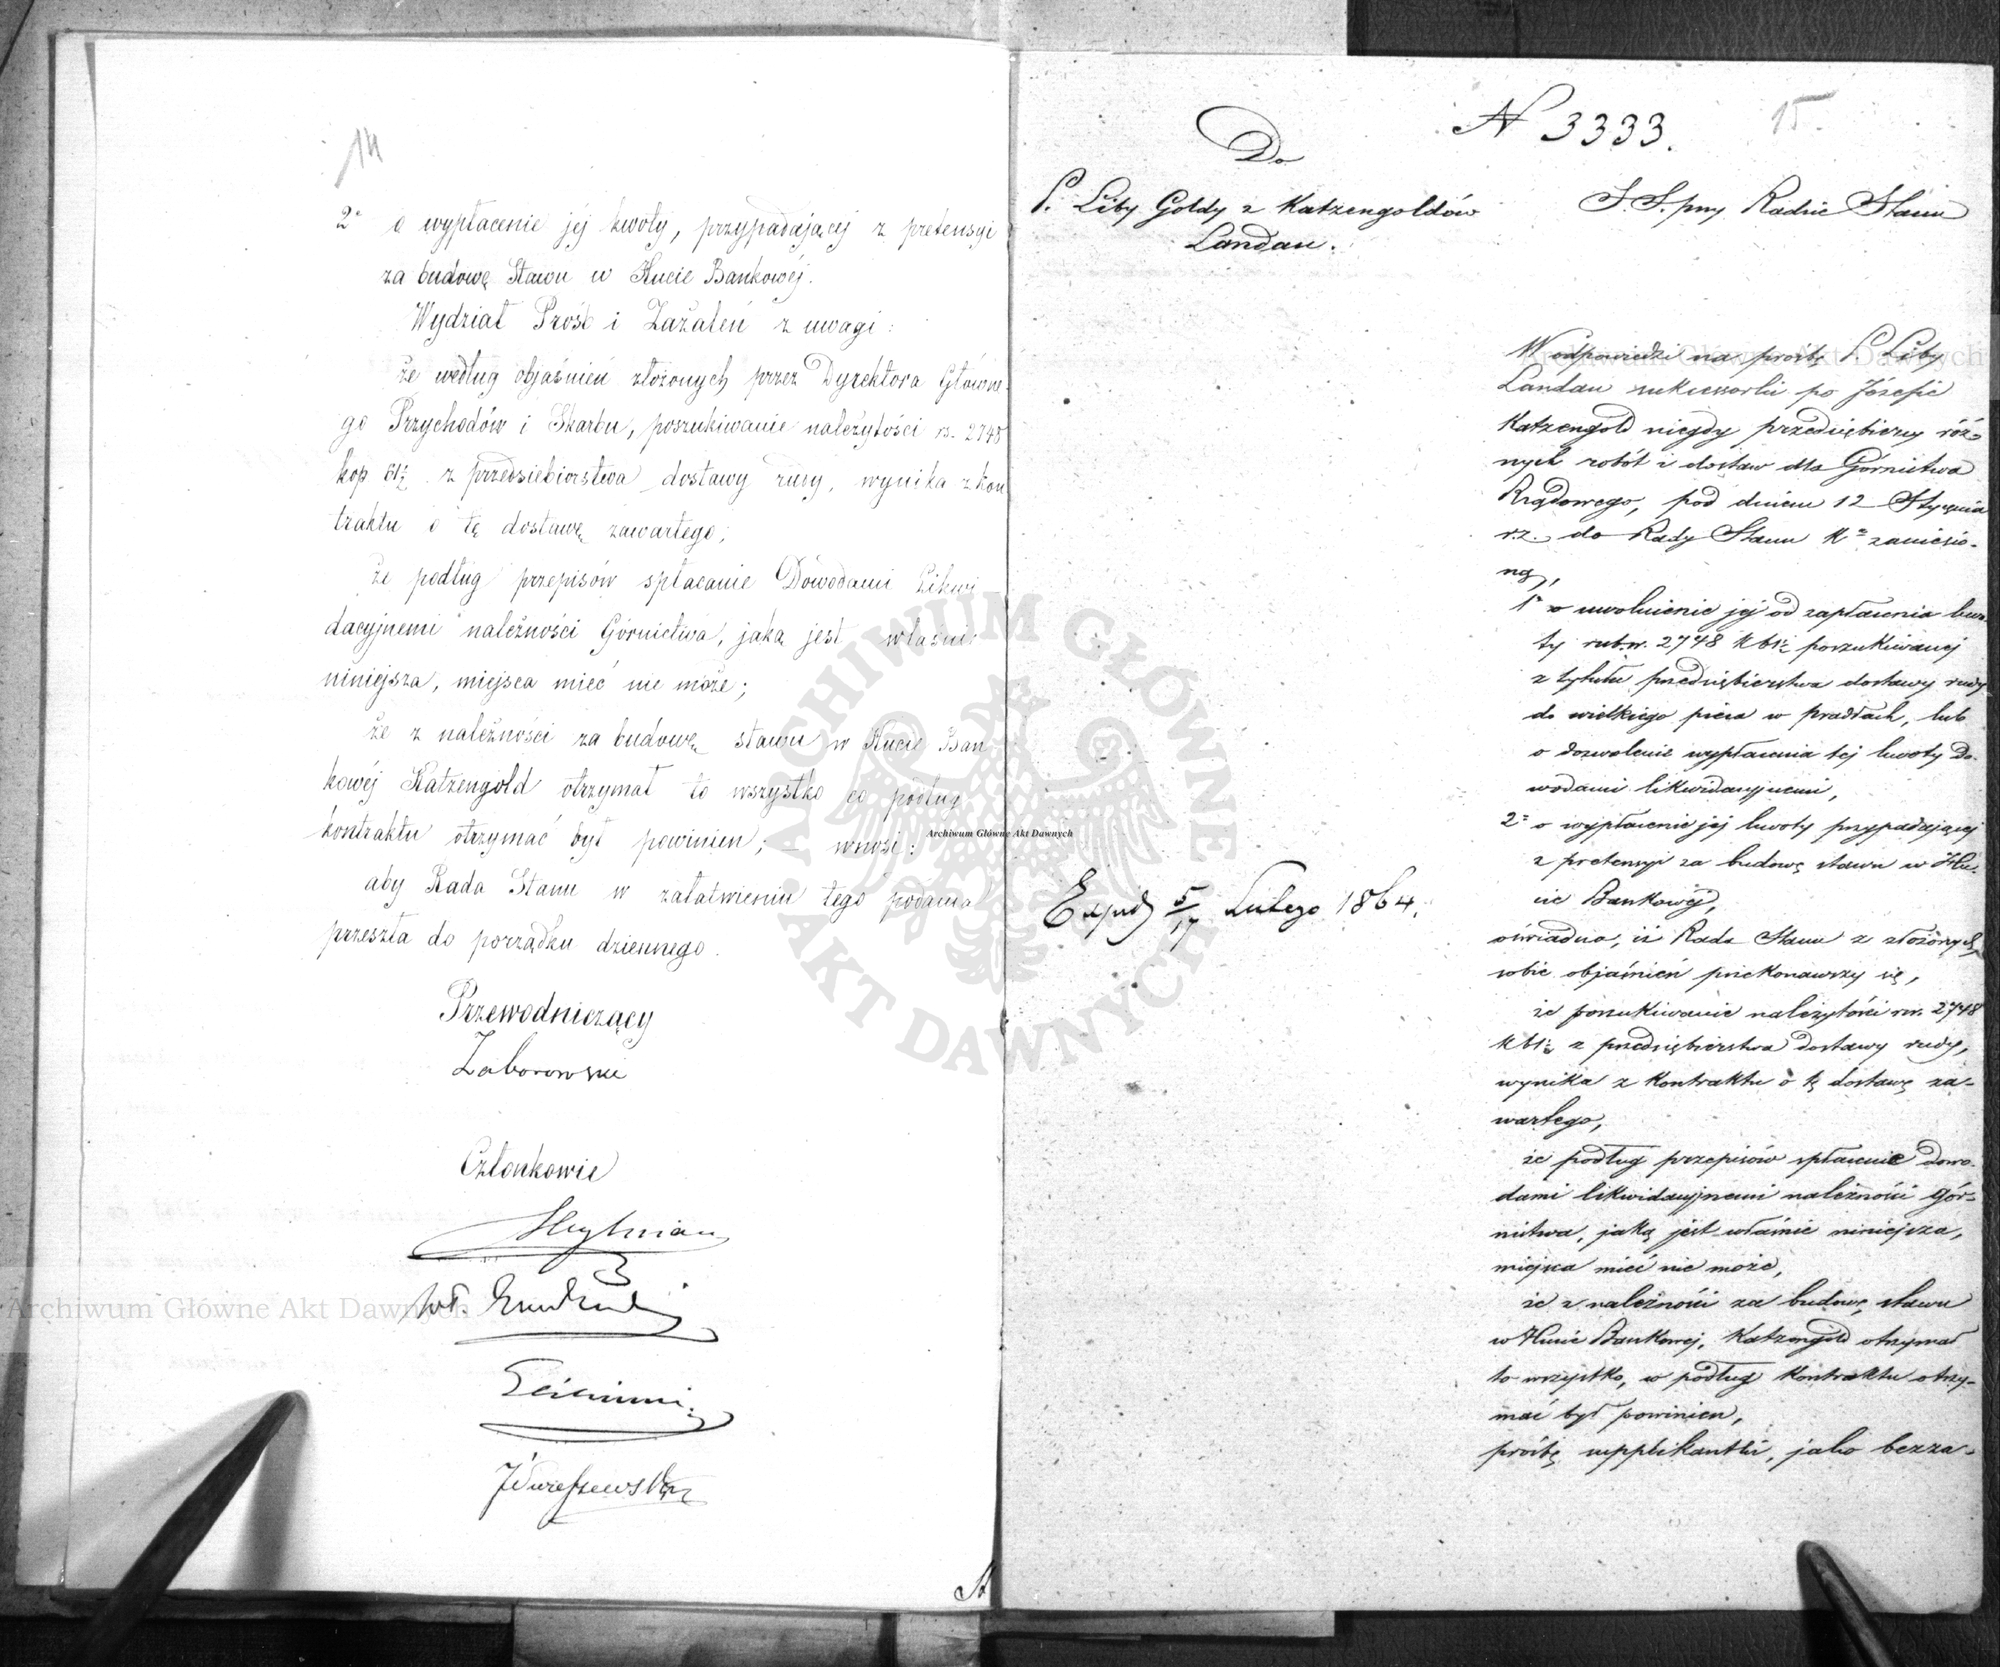 14
2° o wypłacenie jéj kwoty, przypadającej z pretensyi
za budowę Stawu w Hucie Bankowéj.
Wydział Prośb i Zażaleń z uwagi:
że według objaśnień złożonych przez Dyrektora Główne-
go Przychodów i Skarbu, poszukiwanie należytości rs. 2748
kop 61½ z przedsiebiorstwa dostawy rudy, wynika z kon
traktu o tę dostawę zawartego;
że podług przepisów spłacanie Dowodami Likwi
dacyjnemi należności Górnictwa, jaką jest właśnie
niniejsza, miejsca mieć nie może;
że z należności za budowę stawu w Hucie Ban
kowéj Katzengold otrzymał to wszystko co podług
kontraktu otrzymać był powinien; – wnosi:
aby Rada Stanu w załatwieniu tego podania
przeszła do porządku dziennego.
Przewodniczący
Zaborowski
Członkowie
Heylman
N 3333.
15.
Do
P. Liby Goldy z Katzengoldów
Landau.
S. S. przy Radzie Stanu
W odpowiedzi na prośbę P. Liby
Landau sukcessorki po Józefie
Katzengold niegdy przedsiębiercy róż-
nych robót i dostaw dla Górnictwa
Rządowego, pod dniem 12 Stycznia
r.z. do Rady Stanu K° zaniesio-
ną,
1° o uwolnienie jej od zapłacenia kwo-
ty rub.sr. 2748 k 61½ poszukiwanej
z tytułu przedsiębierstwa dostawy rudy
do wielkiego pieca w Pradłach, lub
o dozwolenie wypłacenia tej kwoty Do-
wodami likwidacyjnemi,
2° o wypłacenie jej kwoty przypadającej
z pretensyi za budowę stawu w Hu-
cie Bankowéj,
oświadcza, iż Rada Stanu z złożonych
sobie objaśnień przekonawszy się,
że poszukiwanie należytości rsr. 2748
k 61½ z przedsiębierstwa dostawy rudy,
wynika z kontraktu o tę dostawę za-
wartego,
że podług przepisów spłacenie dowo-
dami likwidacyjnemi należności gór-
nictwa, jaką jest właśnie niniejsza,
miejsca mieć nie może,
że z należności za budowę stawu
w Hucie Bankowej, Katzengold otrzymał
to wszystko, co podług kontraktu otrzy-
mać był powinien,
prośbę supplikantki, jako bezza-
Exped 5/17 Lutego 1864.
Archiwum Główne Akt Dawnych
Archiwum Główne Akt Dawnych
Archiwum Główne Akt Dawnych
ARCHIWUM GŁÓWNE
AKT DAWNYCH